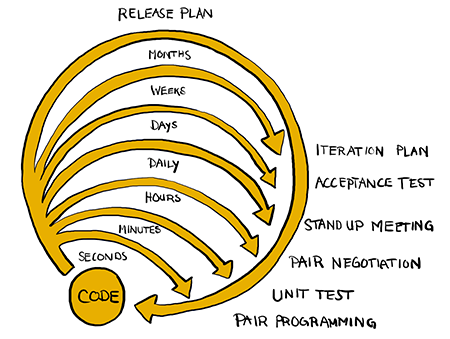 RELEASE PLAN
MONTHS
WEEKS
DAYS
DAILY
HOURS
MINUTES
SECONDS
CODE
ITERATION PLAN
ACCEPTANCE TEST
STAND UP MEETING
PAIR NEGOTIATION
UNIT TEST
PAIR PROGRAMMING